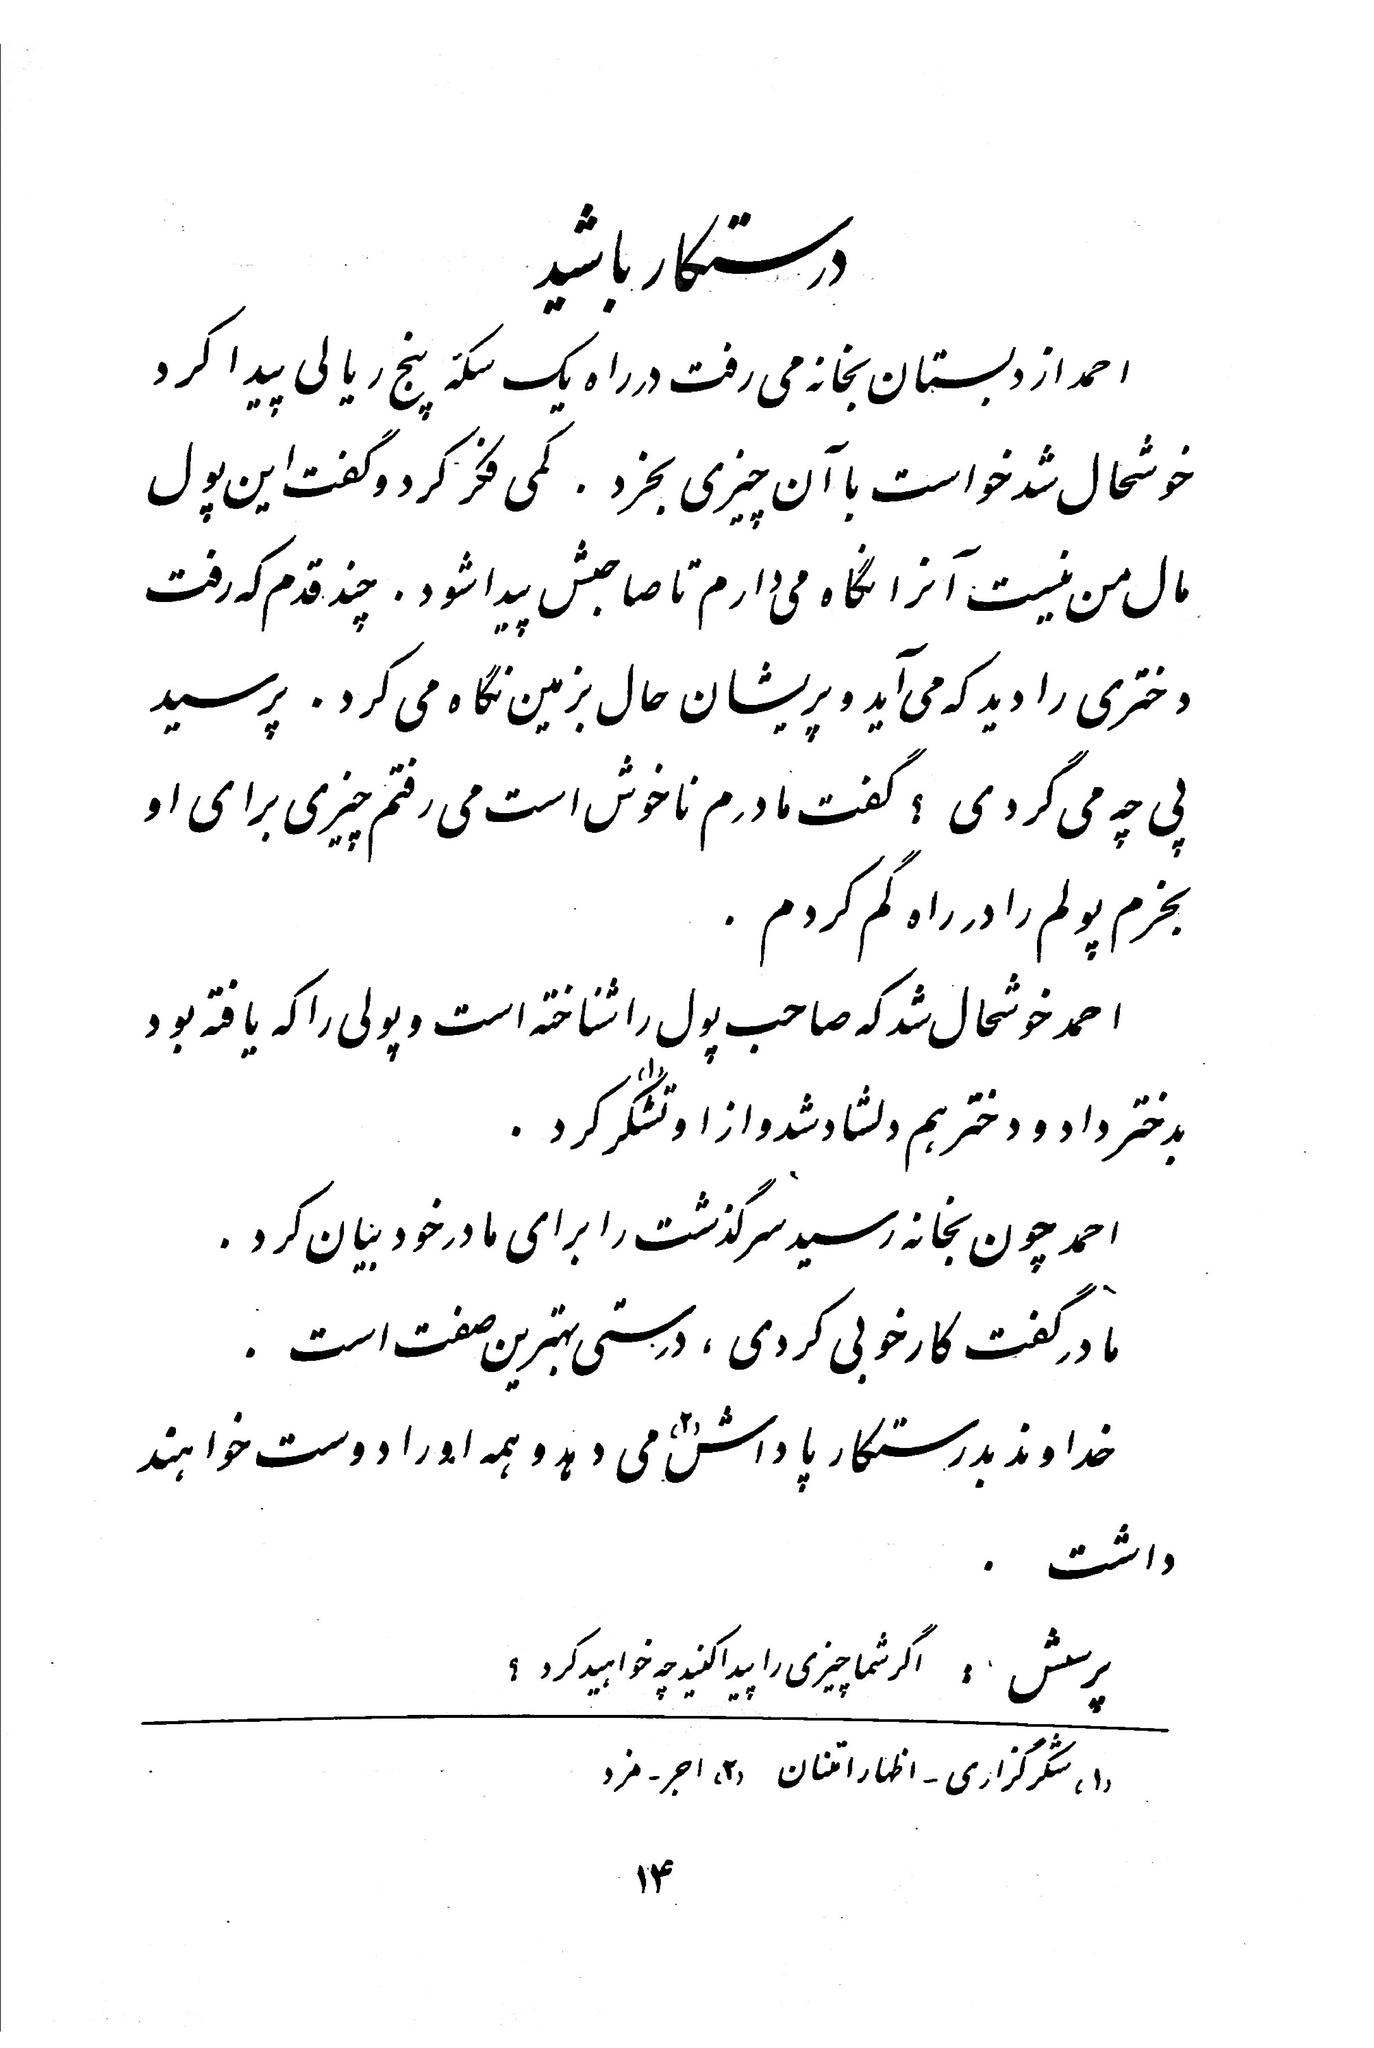 درستکار باشید
احمد از دبستان بخانه می رفت در راه یک سکهٔ پنج ریالی پیدا کرد
خوشحال شد خواست با آن چیزی بخرد . کمی فکر کرد و گفت این پول
مال من نیست آنرا نگاه می دارم تا صاحبش پیدا شود . چند قدم که رفت
دختری را دید که می آید و پریشان حال بزمین نگاه می کرد . پرسید
پی چه می گردی ؟ گفت مادرم ناخوش است می رفتم چیزی برای او
بخرم پولم را در راه گم کردم .
احمد خوشحال شد که صاحب پول را شناخته است و پولی را که یافته بود
بدختر داد و دختر هم دلشاد شد و از او تشکر (۱) کرد .
احمد چون بخانه رسید سرگذشت را برای مادر خود بیان کرد .
مادر گفت کار خوبی کردی ، درستی بهترین صفت است .
خداوند بدرستکار پاداش (۲) می دهد و همه او را دوست خواهند
داشت .
پرسش : اگر شما چیزی را پیدا کنید چه خواهید کرد ؟
(۱) شکرگزاری - اظهار امتنان (۲) اجر - مزد
۱۴